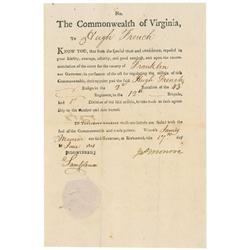 No.
The Commonwealth of Virginia,
To Hugh French
KNOW YOU, that from the special trust and confidence, reposed in
your fidelity, courage, activity, and good conduct, and upon the recom-
mendation of the court for the county of Franklin
our Governor, in pursuance of the act for regulating the militia of this
Commonwealth, doth appoint you the said Hugh French
Ensign in the 2d Battalion of the 43
Regiment, in the Brigade,
and 1st Division of the said militia, to take rank as to date and
by the number and date hereof.
IN TESTIMONY WHEREOF these our letters are Sealed with the
Seal of the Commonwealth and made patent. Witness James
Monroe our said Governor, at Richmond, the 17th day
of June 1801
Jas Monroe
REGISTERED,